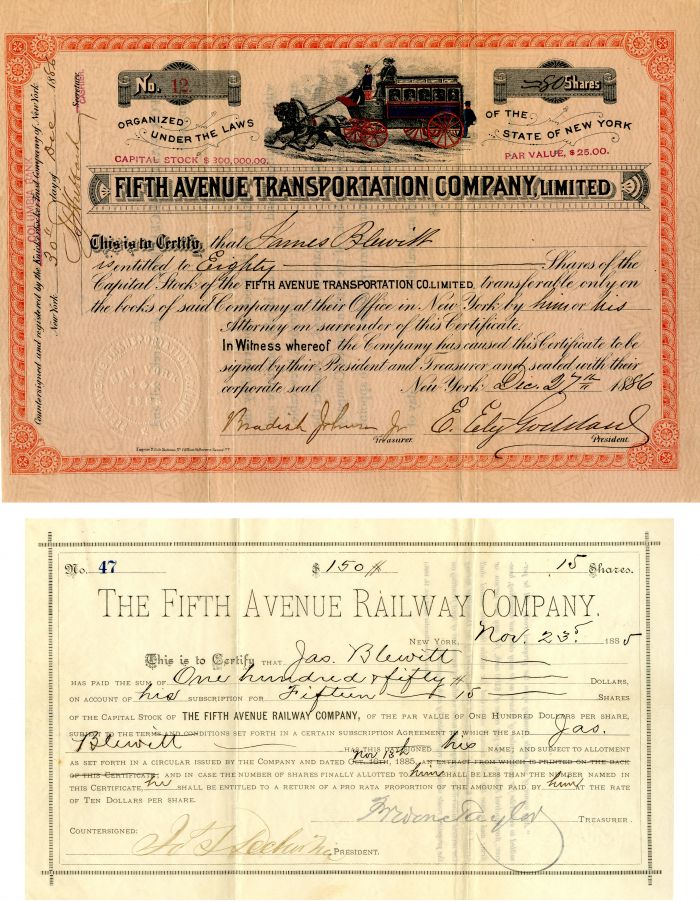 No. 12.
80 Shares
ORGANIZED UNDER THE LAWS
OF THE STATE OF NEW YORK
CAPITAL STOCK $ 300,000.00.
PAR VALUE, $ 25.00.
FIFTH AVENUE TRANSPORTATION COMPANY, LIMITED
This is to Certify, that James Blewitt
is entitled to Eighty Shares of the
Capital Stock of the FIFTH AVENUE TRANSPORTATION CO. LIMITED, transferable only on
the books of said Company at their Office in New York by him or his
Attorney on surrender of this Certificate.
In Witness whereof the Company has caused this Certificate to be
signed by their President and Treasurer and sealed with their
corporate seal New York Dec. 27th 1886
Bradish Johnson Jr
Treasurer.
President.
Countersigned and registered by the Knickerbocker Trust Company of New York
COLUMBIA BANK
New York 30th day of Dec 1886
Secretary
CASHIER
No. 47
$ 150
15 Shares.
THE FIFTH AVENUE RAILWAY COMPANY.
NEW YORK, Nov. 23d 1885
This is to Certify THAT Jas. Blewitt
HAS PAID THE SUM OF One hundred & fifty DOLLARS,
ON ACCOUNT OF his SUBSCRIPTION FOR Fifteen 15 SHARES
OF THE CAPITAL STOCK OF THE FIFTH AVENUE RAILWAY COMPANY, OF THE PAR VALUE OF ONE HUNDRED DOLLARS PER SHARE,
SUBJECT TO THE TERMS AND CONDITIONS SET FORTH IN A CERTAIN SUBSCRIPTION AGREEMENT TO WHICH THE SAID Jas.
Blewitt HAS THIS DAY SIGNED his NAME; AND SUBJECT TO ALLOTMENT
Nov 18th
AS SET FORTH IN A CIRCULAR ISSUED BY THE COMPANY AND DATED OCT. 16TH, 1885, AN EXTRACT FROM WHICH IS PRINTED ON THE BACK
OF THIS CERTIFICATE, AND IN CASE THE NUMBER OF SHARES FINALLY ALLOTTED TO him SHALL BE LESS THAN THE NUMBER NAMED IN
THIS CERTIFICATE, he SHALL BE ENTITLED TO A RETURN OF A PRO RATA PROPORTION OF THE AMOUNT PAID BY him AT THE RATE
OF TEN DOLLARS PER SHARE.
TREASURER.
COUNTERSIGNED:
PRESIDENT.